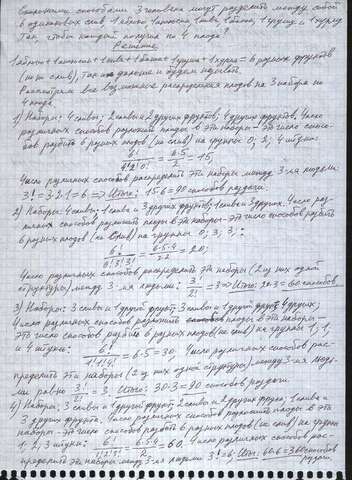 Сколькими способами 3 человека могут разделить между собой
6 одинаковых слив, 1 яблоко, 1 апельсин, 1 айва, 1 банан, 1 грушу и 1 хурму
так, чтобы каждый получил по 4 плода?
Решение
1 яблоко + 1 апельсин + 1 айва + 1 банан + 1 груша + 1 хурма = 6 разных фруктов
(не слив), так и дальше и будем называть.
Рассмотрим все возможные распределения плодов на 3 набора по
4 плода.
1) Наборы: 4 сливы; 2 сливы и 2 других фруктов; 4 других фруктов. Число
различных способов разложить плоды в эти наборы – это число спосо-
бов разбить 6 разных плодов (не слив) на группы 0; 2; 4 штуки:
6!/(0!2!4!) = 6·5/2 = 15,
Число различных способов распределить эти наборы между 3-мя людьми
3! = 3·2·1 = 6 => Итого: 15·6 = 90 способов раздачи.
2) Наборы: 4 сливы; 1 слива и 3 других фруктов; 1 слива и 3 других. Число раз-
личных способов разложить плоды в эти наборы – это число способов разбить
6 разных плодов (не слив) на группы 0; 3; 3:
6!/(0!3!3!) = 6·5·4/(2·2) = 20;
Число различных способов распределить эти наборы (2 из них одной
структуры) между 3-мя людьми: 3!/2! = 3 => Итого: 20·3 = 60 способов.
3) Наборы: 3 сливы и 1 другой фрукт; 3 сливы и 1 другой фрукт; 4 других;
Число различных способов разложить плоды в эти наборы –
это число способов разбить 6 разных плодов (не слив) на группы 1; 1,
и 4 штуки: 6!/(1!1!4!) = 6·5 = 30, Число различных способов рас-
пределить эти наборы (2 из них одной структуры) между 3-мя людь-
ми равно 3!/2! = 3. Итого: 30·3 = 90 способов раздачи.
4) Наборы: 3 сливы и 1 другой фрукт; 2 сливы и 2 других фрукта, 1 слива и
3 других фрукта. Число различных способов разложить плоды в эти
наборы – это число способов разбить 6 разных плодов (не слив) на группы
1; 2, 3 штуки: 6!/(1!2!3!) = 6·5·4/2 = 60. Число различных способов рас-
пределить эти наборы между 3-мя людьми 3! = 6. Итог: 60·6 = 360 способов